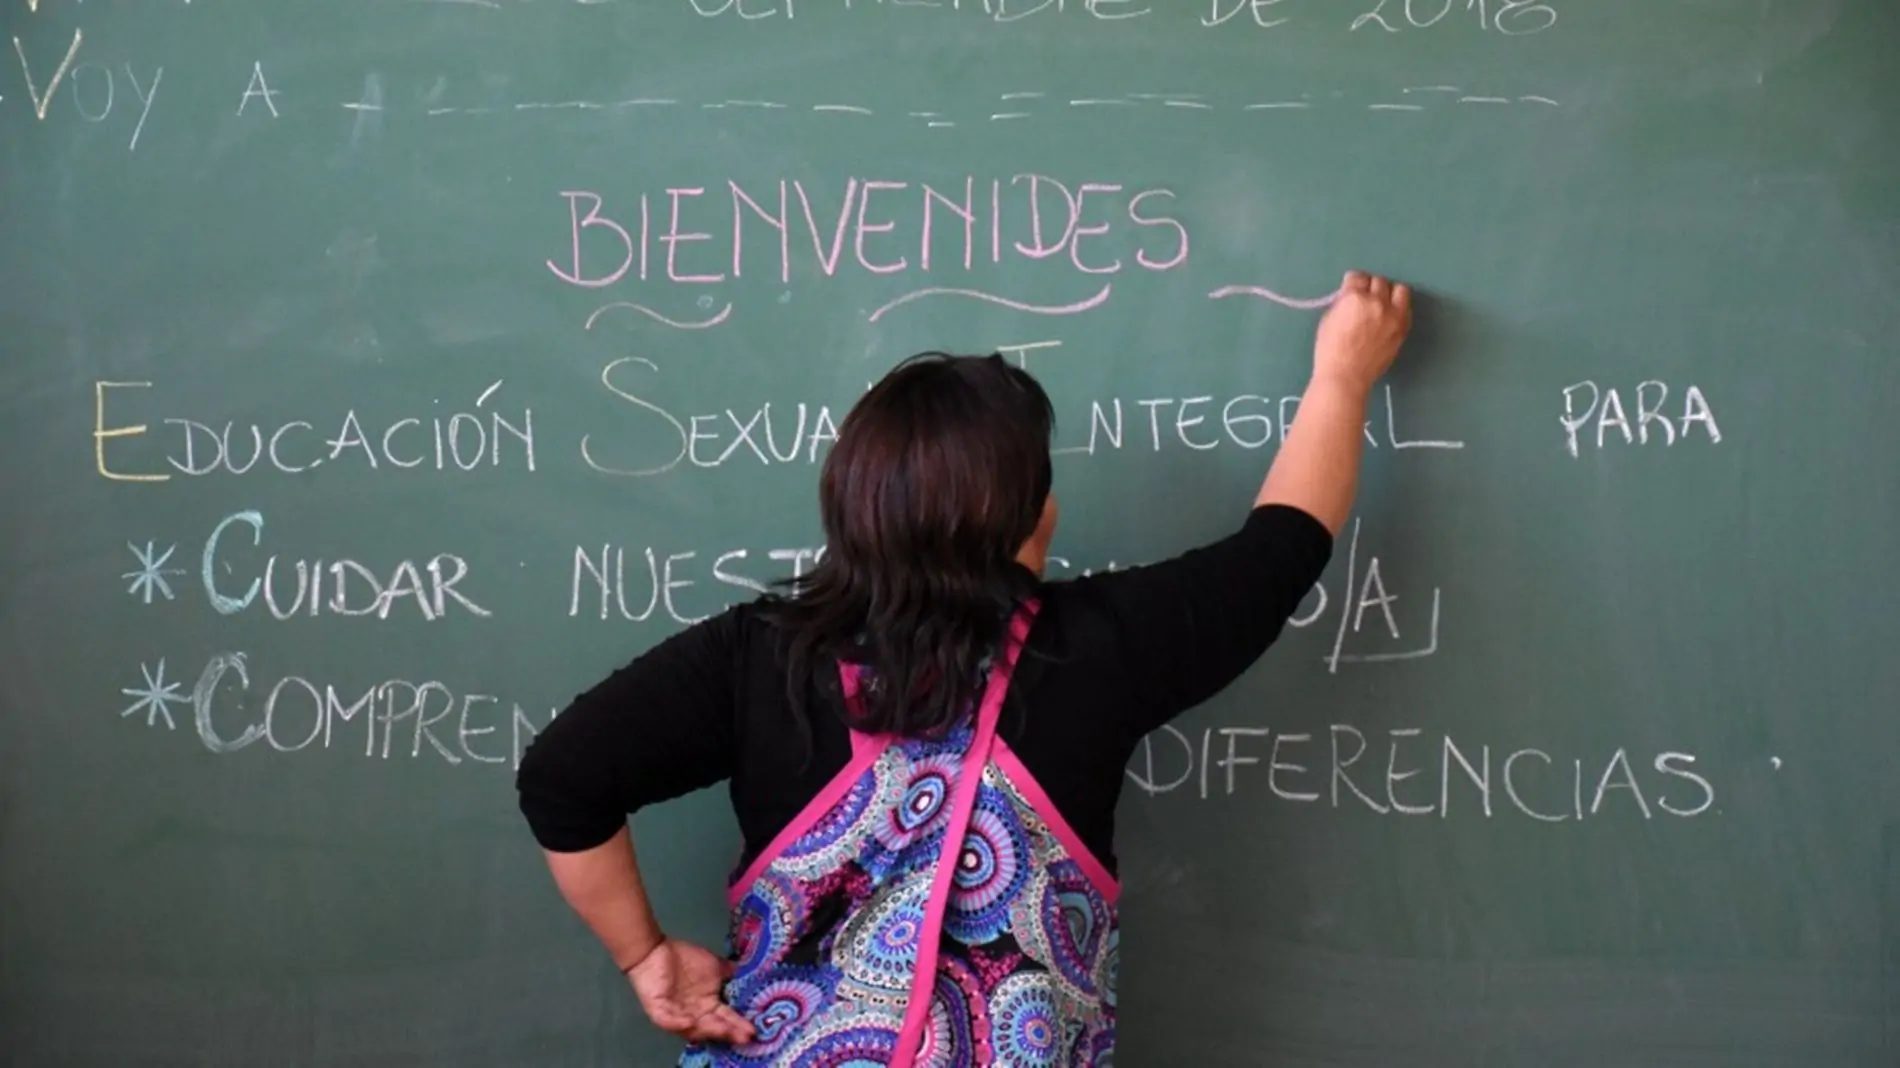 SEPTIEMBRE DE 2018
VOY A
BIENVENIDES
EDUCACIÓN SEXUAL INTEGRAL PARA
* CUIDAR
* DIFERENCIAS.